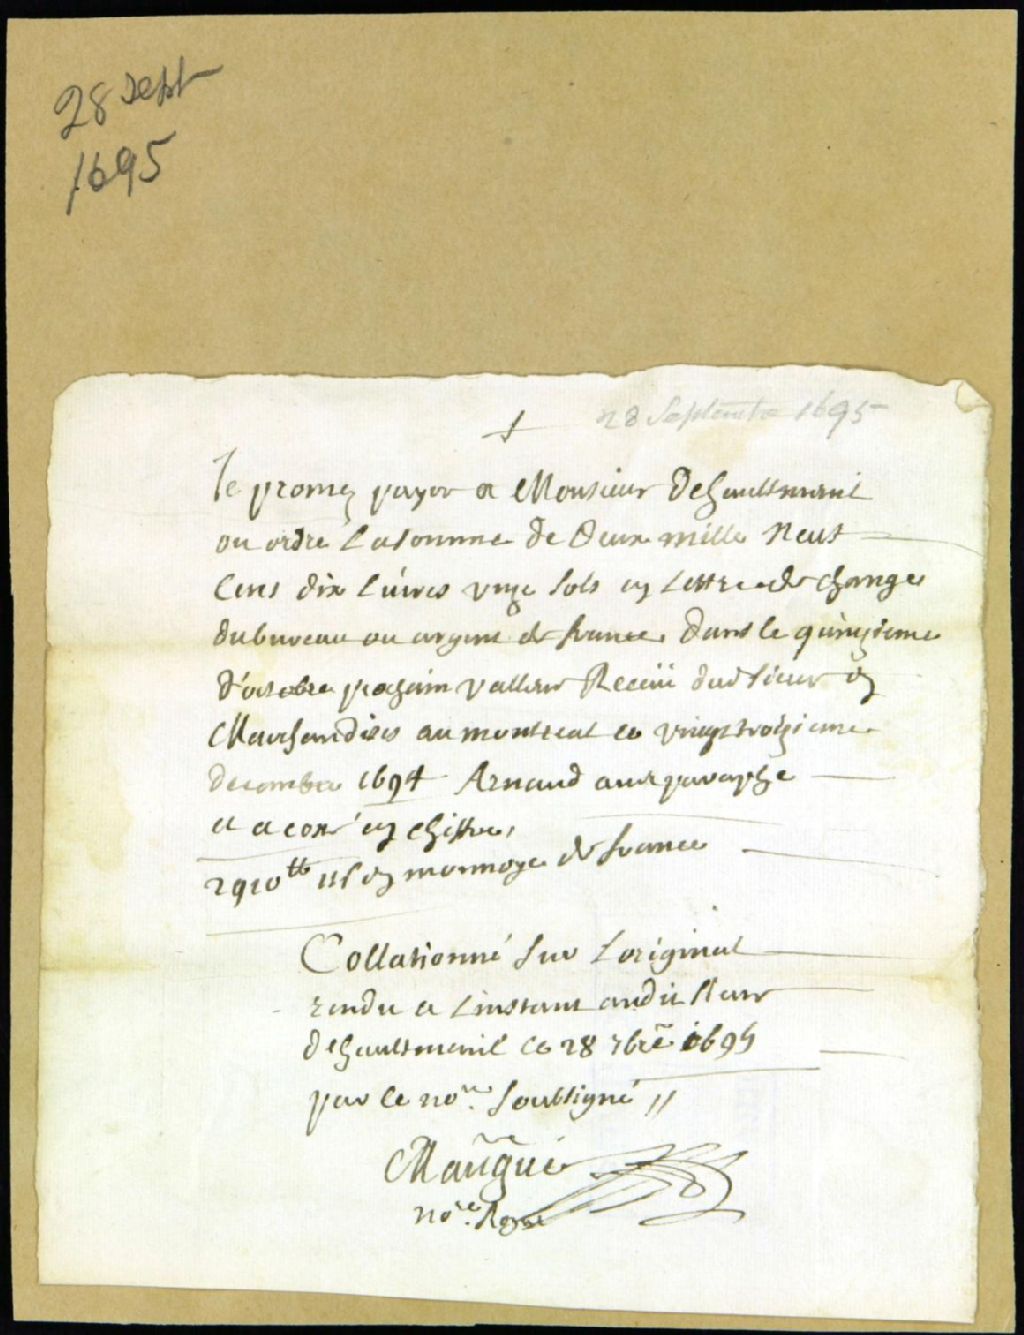 28 sept
1695
28 Septembre 1695
Je promez payer a Monsieur dehaultmenil
ou ordre la somme de deux mille neuf
Cens dix livres unze sols en lettre de change
du bureau ou argent de france dans le quinziéme
d'octobre prochain valleur Receüe dud sieur en
Marchandises au montreal ce vingt troiziéme
decembre 1694 Arnaud avec paraphe
et a costé en chiffres
2910tt 11s en monnoye de france
Collationné sur l'original
rendu a l'instant audit sieur
dehaultmenil ce 28 7bre 1695
par le nore soubsigné //
Maugue
nore Royal